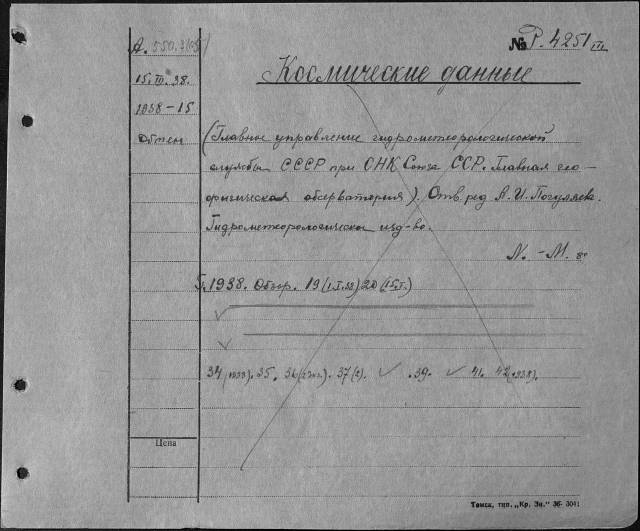 № Р. 4251 III
А. 550.3(05)
Космические данные
15.III.38.
1938-15
Обмен
(Главное управление гидрометеорологической
службы СССР при СНК Союза ССР. Главная гео-
физическая обсерватория). Отв. ред. А. И. Погуляев.
Гидрометеорологическое изд-во.
Л. - М. 8°
1938. Обозр. 19 (1.V.38) 20 (15.V.)
34 (1938). 35. 36 37(2). ✓ .39. ✓ 41. 42 (1938).
Цена
Томск, тип. „Кр. Зн." 36- 3041